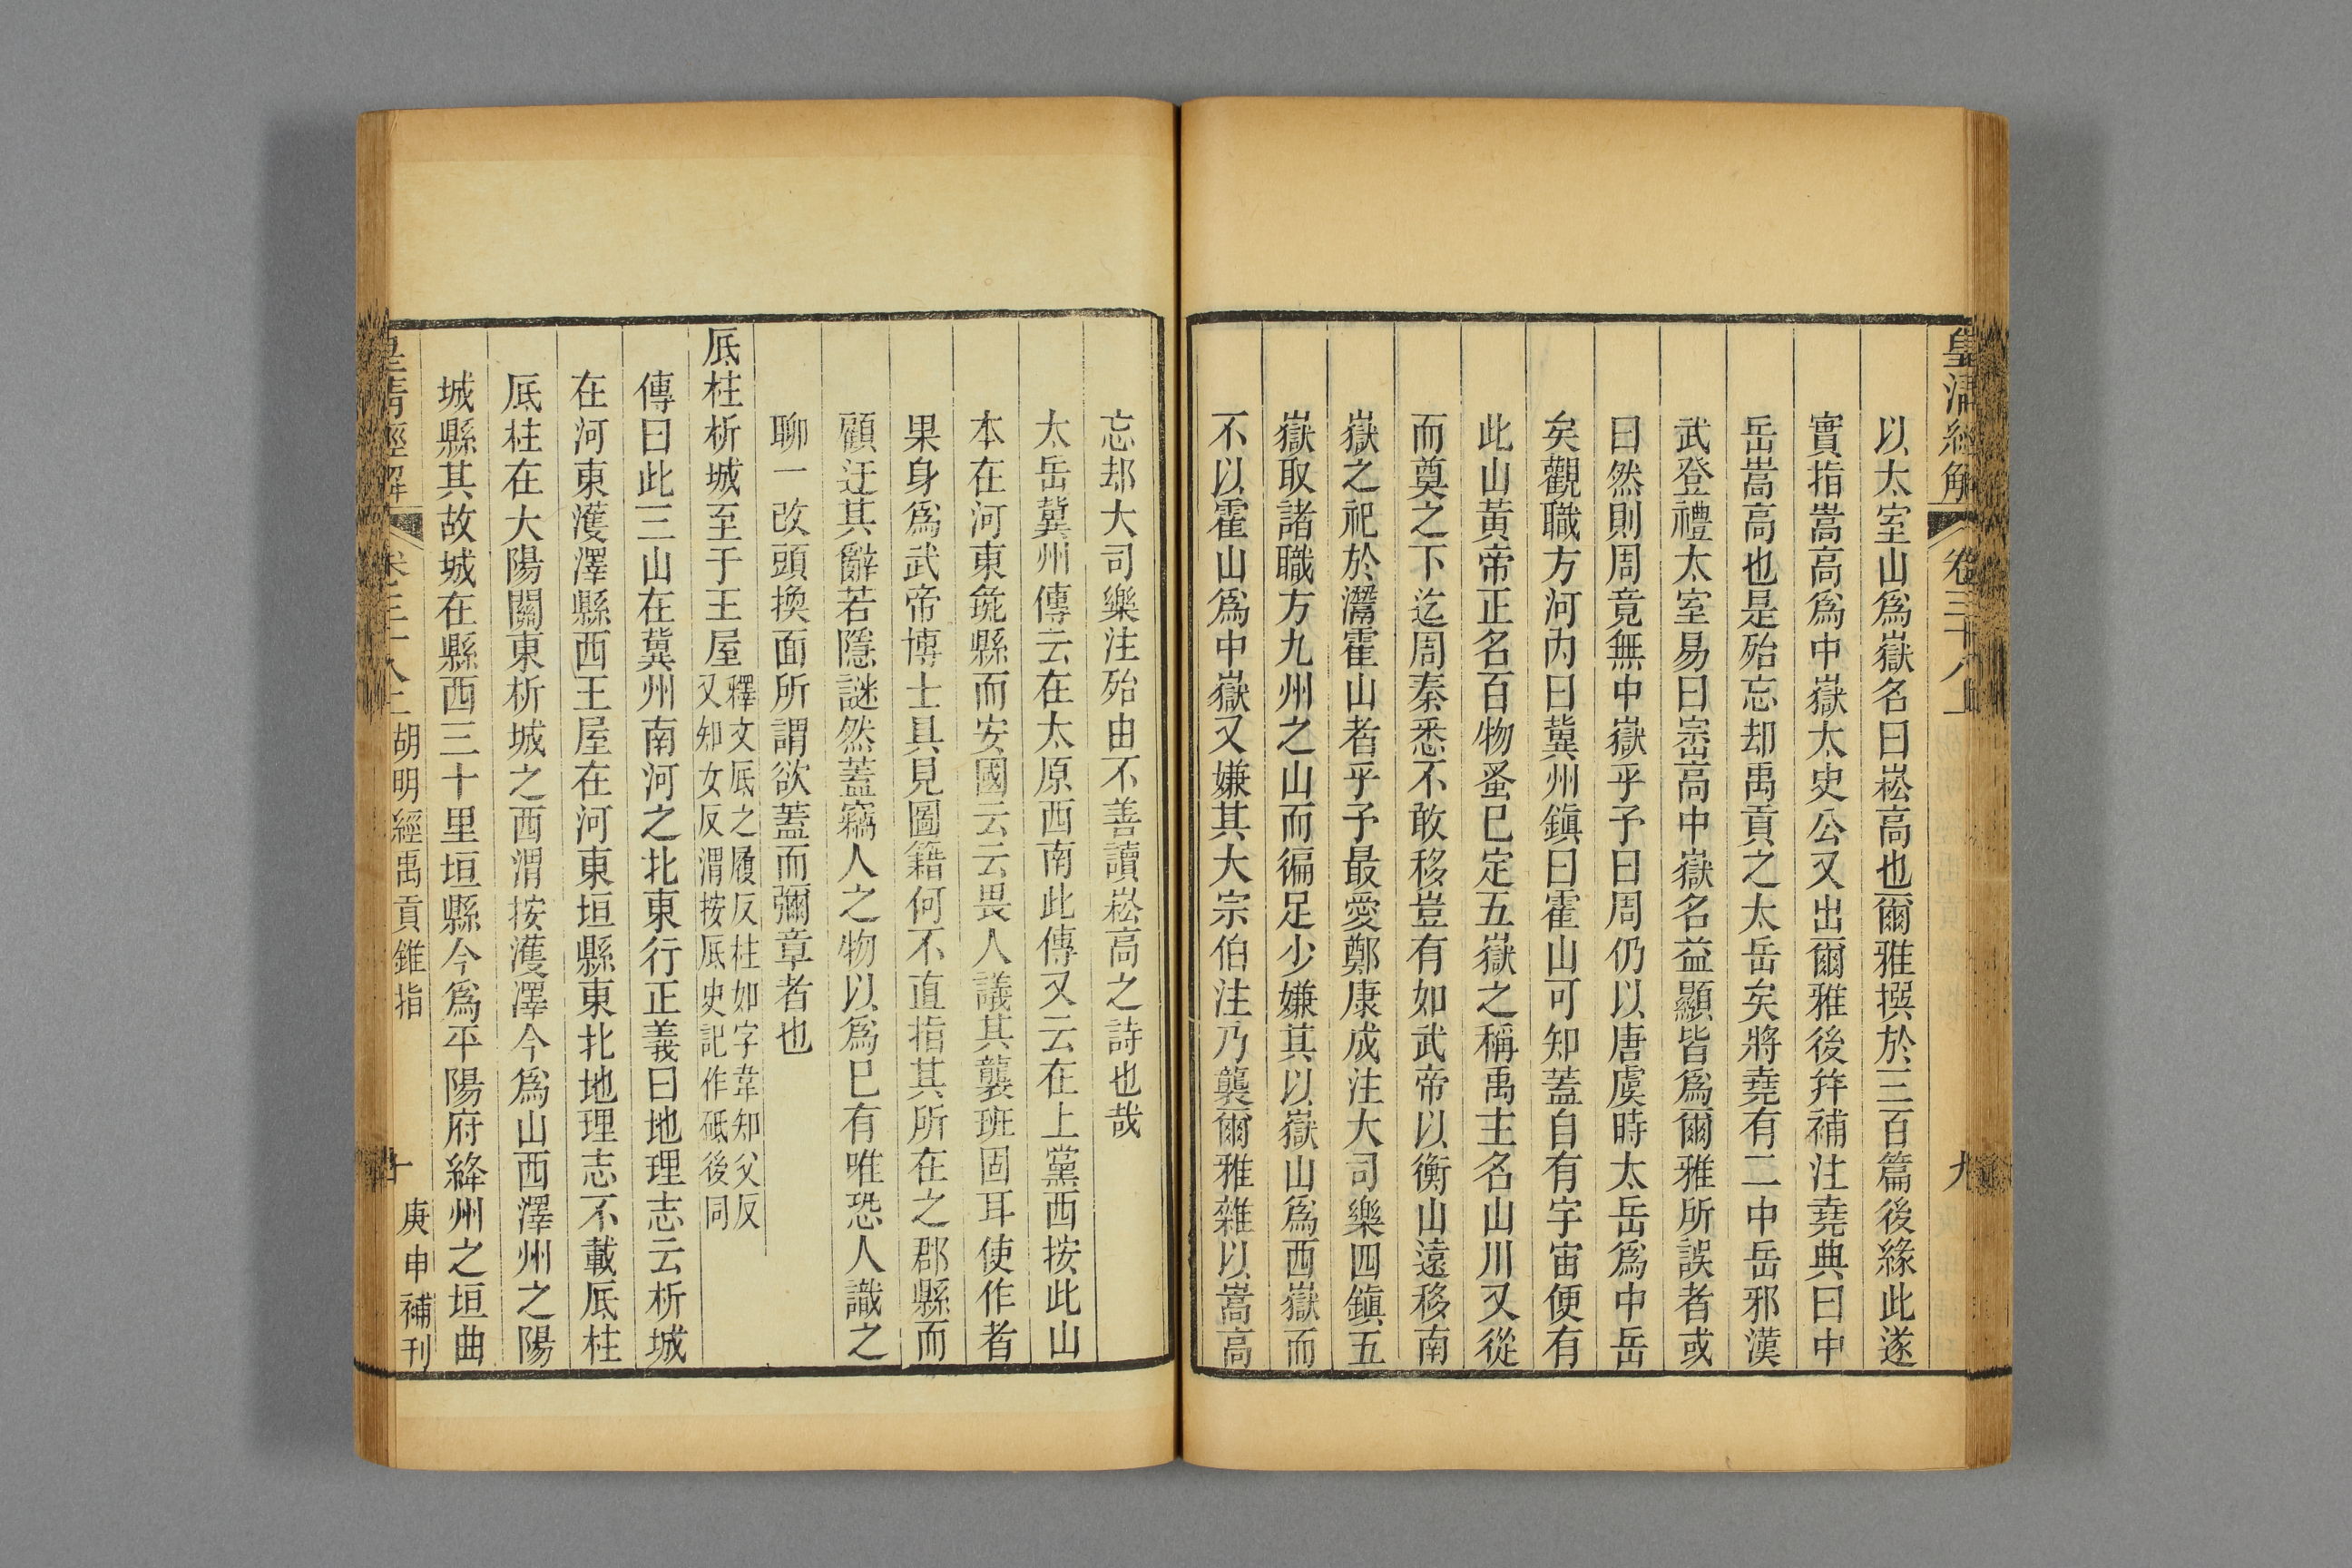 皇清經解 卷三十八上 九
以太室山爲嶽名曰崧高也爾雅撰於三百篇後緣此遂
實指嵩高爲中嶽太史公又出爾雅後幷補注堯典曰中
岳嵩高也是殆忘却禹貢之太岳矣將堯有二中岳邪漢
武登禮太室易曰崈高中嶽名益顯皆爲爾雅所誤者或
曰然則周竟無中嶽乎予曰周仍以唐虞時太岳爲中岳
矣觀職方河內曰冀州鎭曰霍山可知蓋自有宇宙便有
此山黃帝正名百物蚤已定五嶽之稱禹主名山川又從
而奠之下迄周秦悉不敢移豈有如武帝以衡山遠移南
嶽之祀於灊霍山者乎予最愛鄭康成注大司樂四鎭五
嶽取諸職方九州之山而徧足少嫌其以嶽山爲西嶽而
不以霍山爲中嶽又嫌其大宗伯注乃襲爾雅雜以嵩高
忘却大司樂注殆由不善讀崧高之詩也哉
太岳冀州傳云在太原西南此傳又云在上黨西按此山
本在河東彘縣而安國云云畏人議其襲班固耳使作者
果身爲武帝博士具見圖籍何不直指其所在之郡縣而
顧迂其辭若隱謎然蓋竊人之物以爲已有唯恐人識之
聊一改頭換面所謂欲蓋而彌章者也
厎柱析城至于王屋 釋文厎之履反柱如字韋知父反
又知女反渭按厎史記作砥後同
傳曰此三山在冀州南河之北東行正義曰地理志云析城
在河東濩澤縣西王屋在河東垣縣東北地理志不載厎柱
厎柱在大陽關東析城之西渭按濩澤今爲山西澤州之陽
城縣其故城在縣西三十里垣縣今爲平陽府絳州之垣曲
皇清經解 卷三十八上 胡明經禹貢錐指 十 庚申補刊